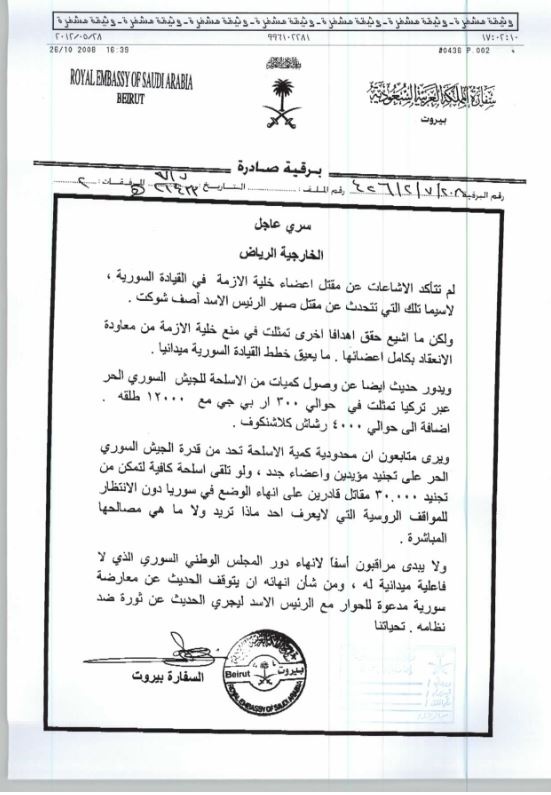 وثيقة مشفرة - وثيقة مشفرة - وثيقة مشفرة - وثيقة مشفرة - وثيقة مشفرة - وثيقة مشفرة - وثيقة مشفرة
١٧:٠٢:١٠ ٩٩٦١٠٢٢٨١ ٢٠١٢/٠٥/٢٨
26/10 2008 16:39 #0436 P.002
ROYAL EMBASSY OF SAUDI ARABIA
BEIRUT
سفارة المملكة العربية السعودية
بيروت
برقية صادرة
رقم البرقية رقم الملف: التاريخ: المرفقات:
سري عاجل
الخارجية الرياض
لم تتأكد الاشاعات عن مقتل اعضاء خلية الازمة في القيادة السورية ،
لاسيما تلك التي تتحدث عن مقتل صهر الرئيس الاسد آصف شوكت .
ولكن ما اشيع حقق اهدافا اخرى تمثلت في منع خلية الازمة من معاودة
الانعقاد بكامل اعضائها . ما يعيق خطط القيادة السورية ميدانيا .
ويدور حديث ايضا عن وصول كميات من الاسلحة للجيش السوري الحر
عبر تركيا تمثلت في حوالي ٣٠٠ ار بي جي مع ١٢٠٠٠ طلقه .
اضافة الى حوالي ٤٠٠٠ رشاش كلاشنكوف .
ويرى متابعون ان محدودية كمية الاسلحة تحد من قدرة الجيش السوري
الحر على تجنيد مؤيدين واعضاء جدد ، ولو تلقى اسلحة كافية لتمكن من
تجنيد ٣٠.٠٠٠ مقاتل قادرين على انهاء الوضع في سوريا دون الانتظار
للمواقف الروسية التي لايعرف احد ماذا تريد ولا ما هي مصالحها
المباشرة .
ولا يبدى مراقبون أسفاً لانهاء دور المجلس الوطني السوري الذي لا
فاعلية ميدانية له ، ومن شأن انهائه ان يتوقف الحديث عن معارضة
سورية مدعوة للحوار مع الرئيس الاسد ليجري الحديث عن ثورة ضد
نظامه . تحياتنا
السفارة بيروت
Beirut بيروت
ROYAL EMBASSY OF SAUDI ARABIA